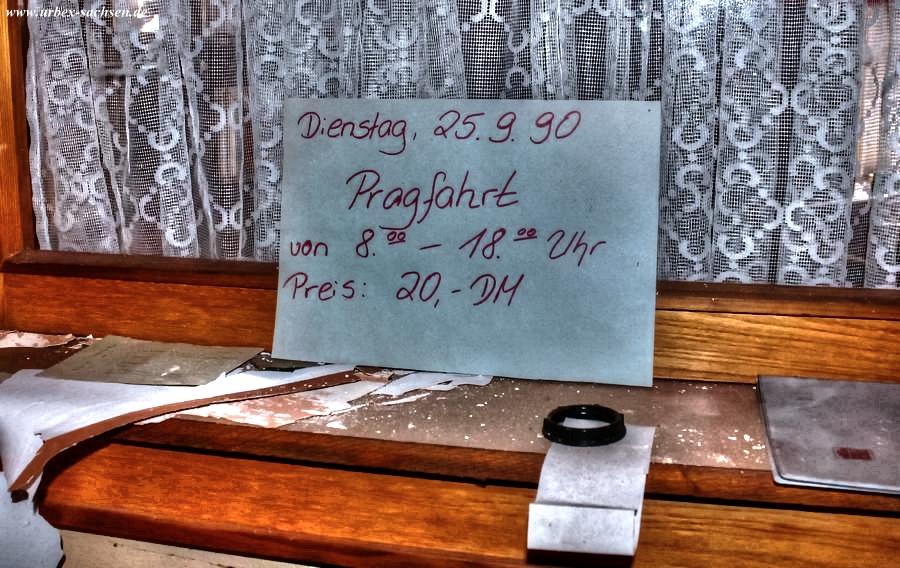 www.urbex-sachsen.de
Dienstag, 25.9.90
Pragfahrt
von 8.00 - 18.00 Uhr
Preis: 20,- DM